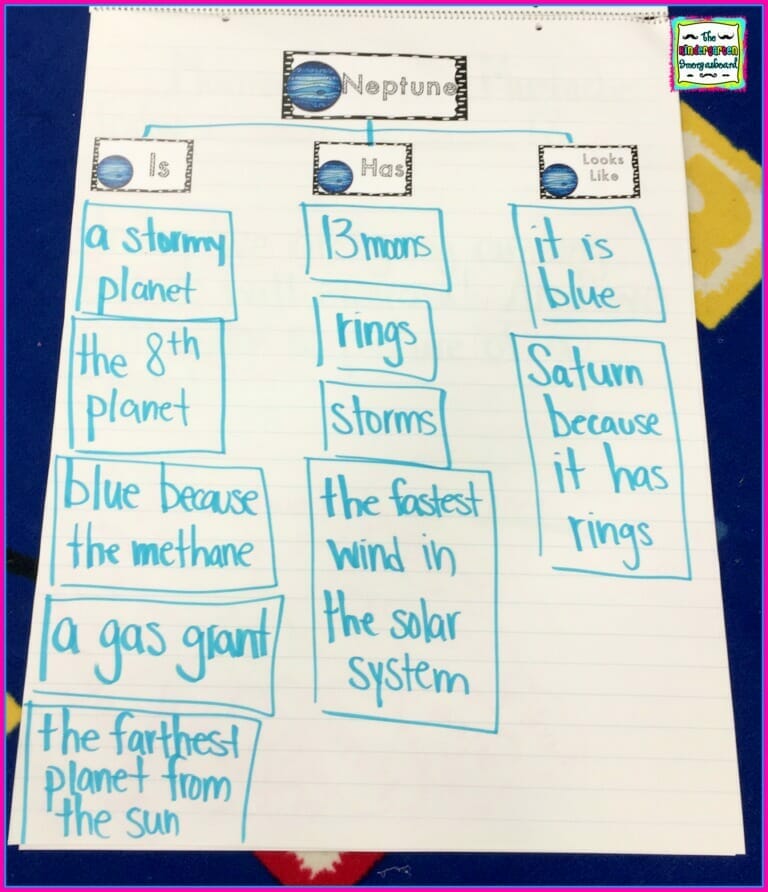 The
Kindergarten
Smorgasboard
Neptune
Is
a stormy
planet
the 8th
planet
blue because
the methane
a gas grant
the farthest
planet from
the sun
Has
13 moons
rings
storms
the fastest
wind in
the solar
system
Looks
Like
it is
blue
Saturn
because
it has
rings